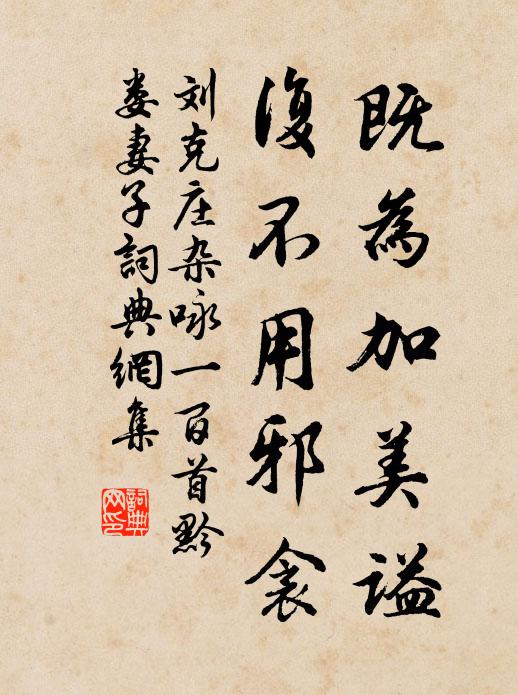 既為加美谥
復不用邪衾
刘克庄杂咏一百首黔
娄妻子詞典網集
詞典
网印